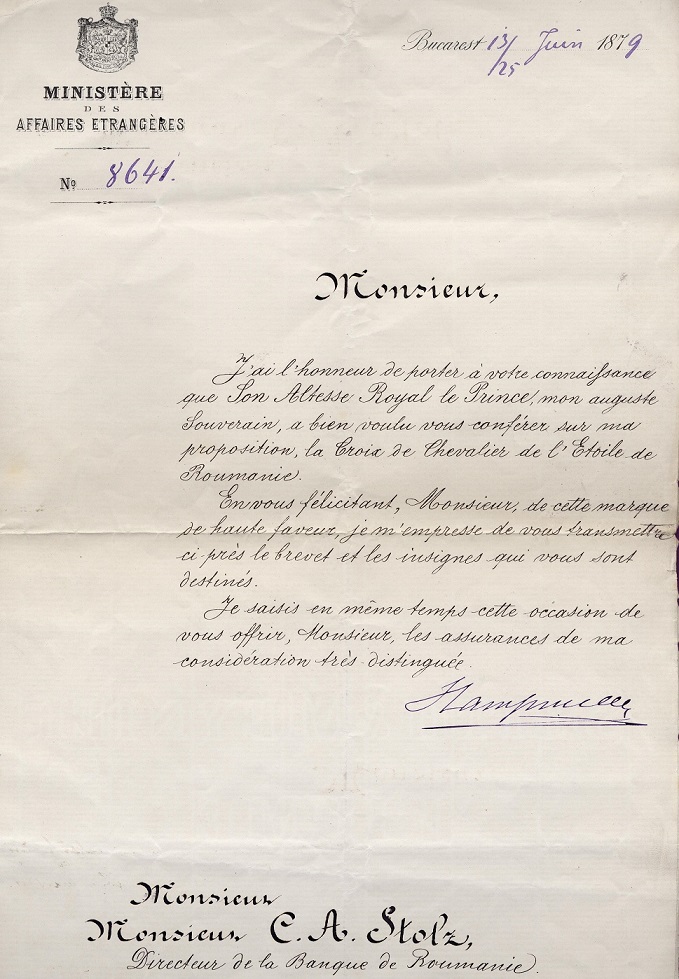 Bucarest 13/25 Juin 1879
MINISTÈRE
DES
AFFAIRES ETRANGÈRES
No 8641.
Monsieur,
J'ai l'honneur de porter à votre connaissance
que Son Altesse Royal le Prince, mon auguste
Souverain, a bien voulu vous conférer sur ma
proposition, la Croix de Chevalier de l'Etoile de
Roumanie.
En vous félicitant, Monsieur, de cette marque
de haute faveur, je m'empresse de vous transmettre
ci près le brevet et les insignes qui vous sont
destinés.
Je saisis en même temps cette occasion de
vous offrir, Monsieur, les assurances de ma
considération très distinguée.
Monsieur
Monsieur C. A. Stolz,
Directeur de la Banque de Roumanie.